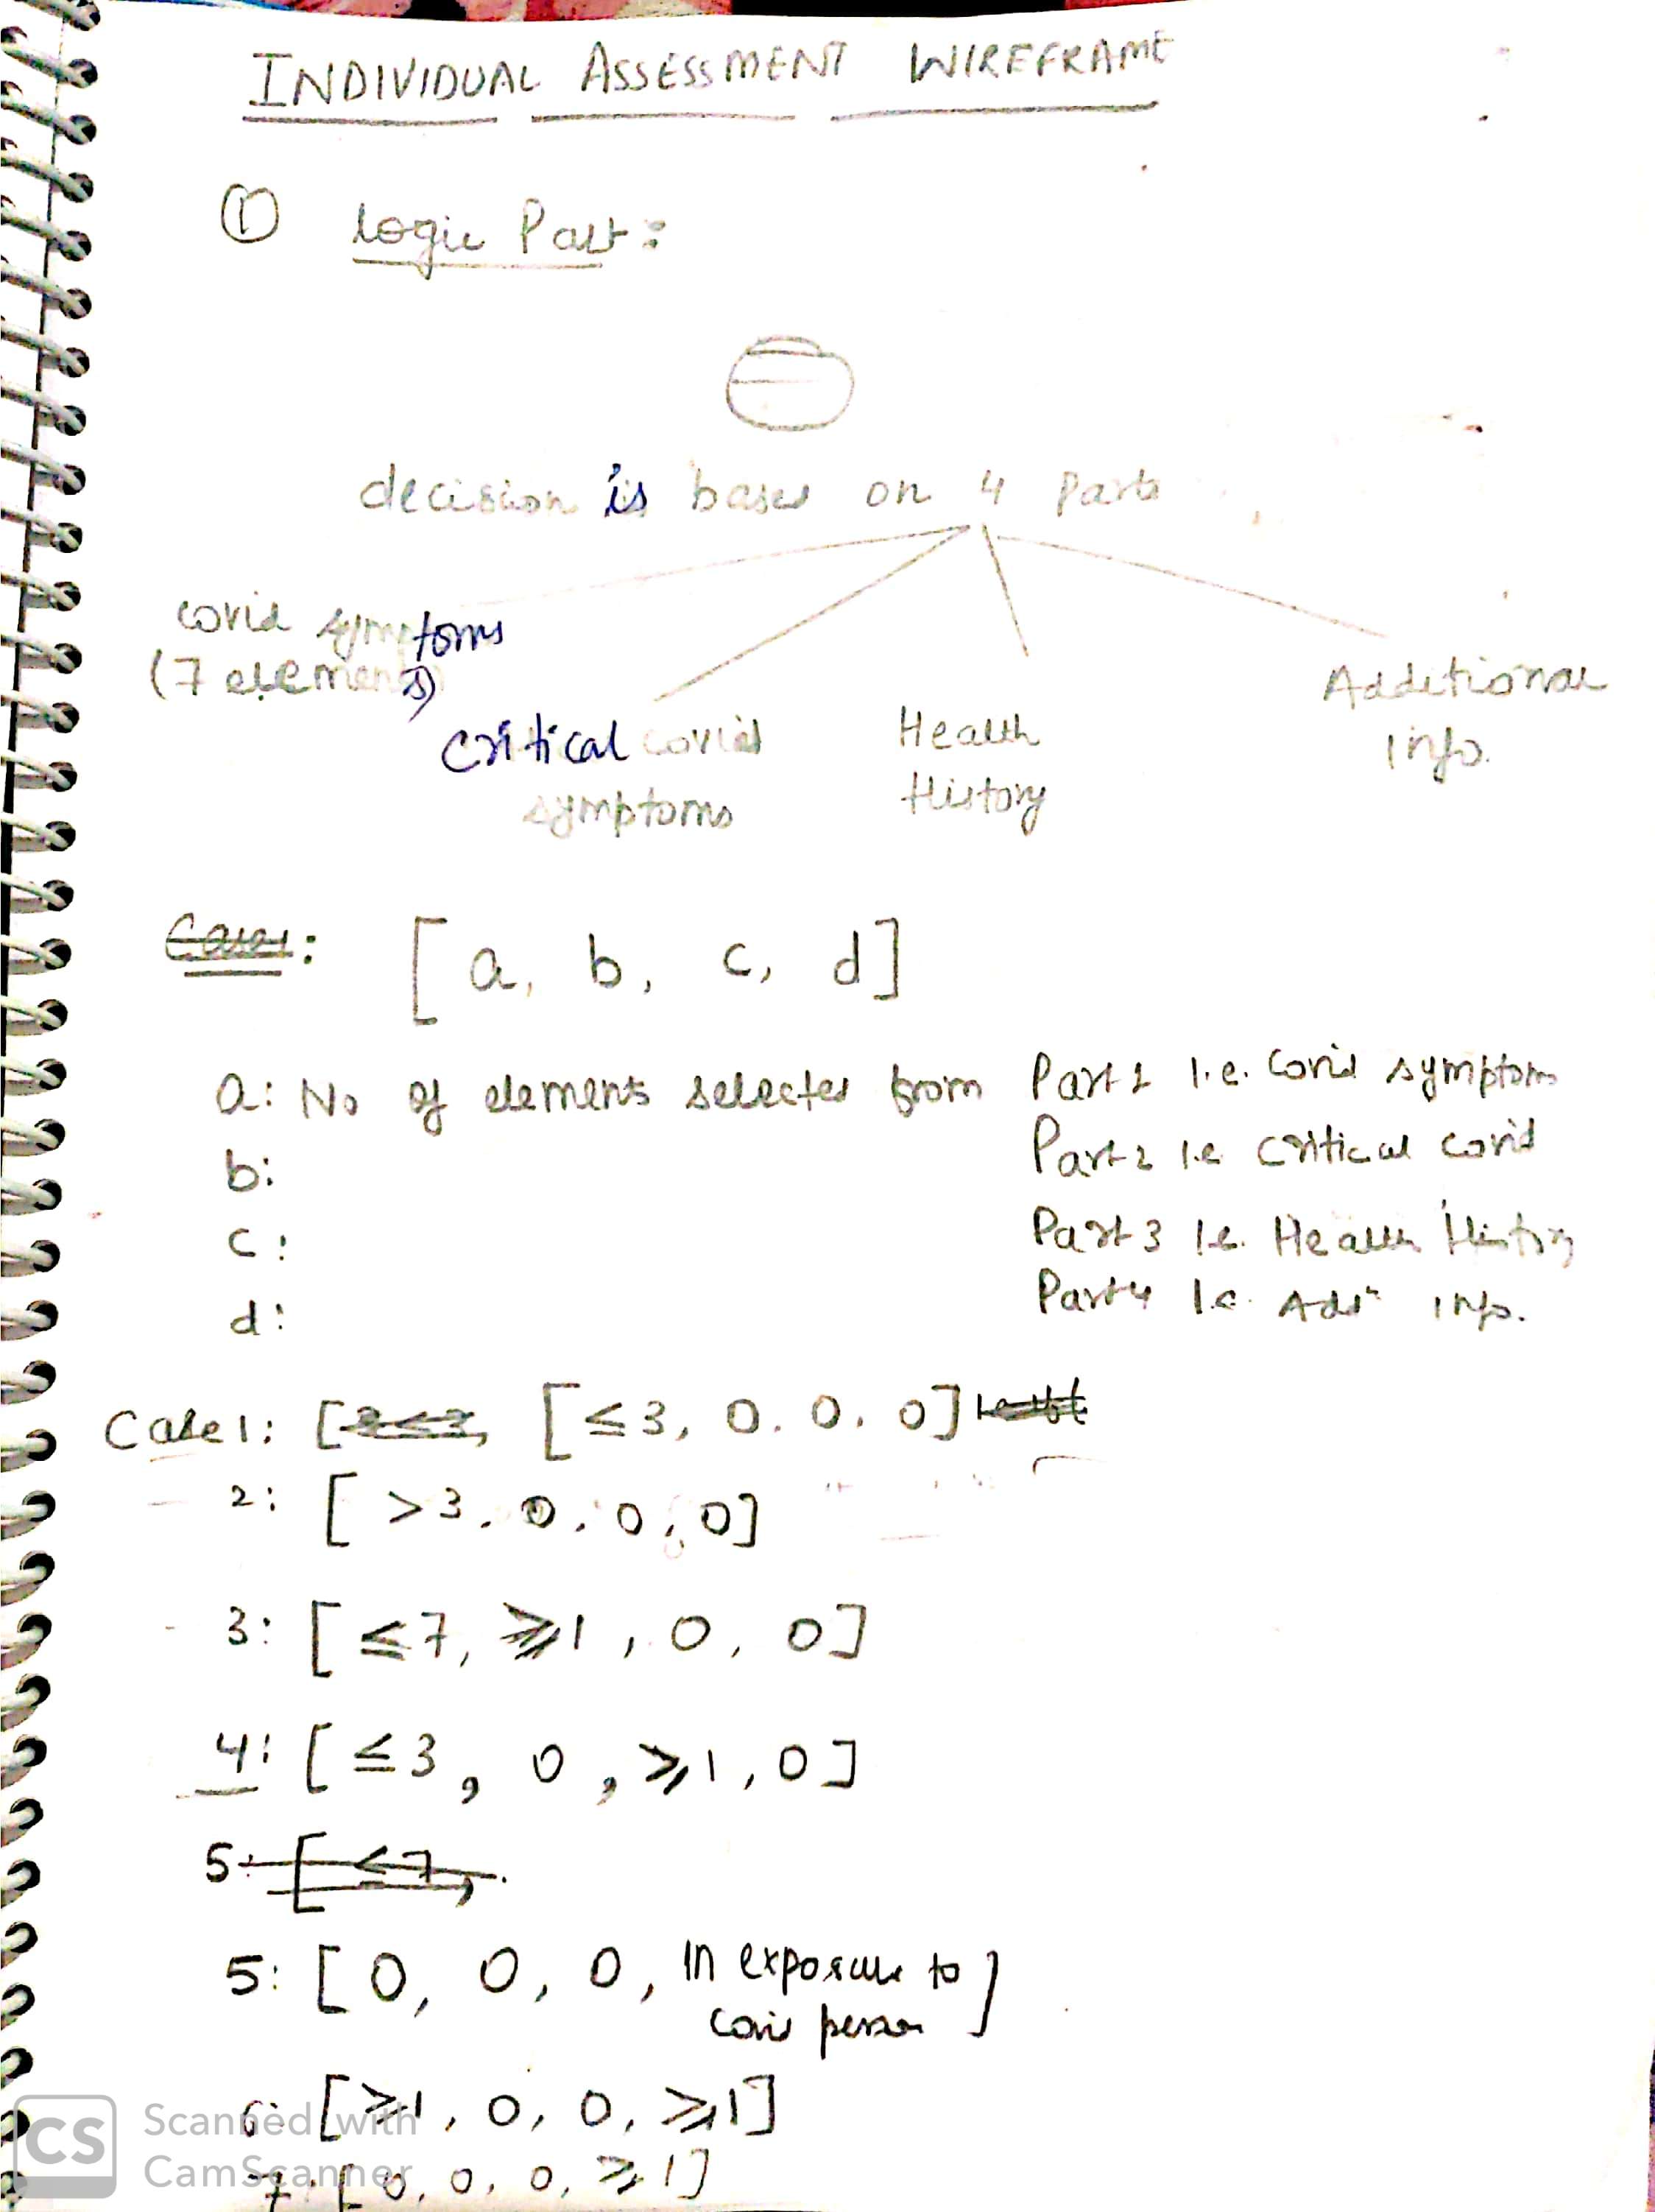 INDIVIDUAL ASSESSMENT WIREFRAME
① Logic Part:
decision is bases on 4 parts
covid symptoms
(7 elements)
critical covid
symptoms
Health
History
Additional
info.
Cases: [a, b, c, d]
a: No of elements selected from Part 1 i.e. Covid symptoms
b: Part 2 i.e. critical covid
c: Part 3 i.e. Health History
d: Part 4 i.e. Addn info.
Case 1: [ [≤3, 0, 0, 0]
2: [>3, 0, 0, 0]
3: [≤7, ≥1, 0, 0]
4: [≤3, 0, ≥1, 0]
5: [≤7,
5: [0, 0, 0, In exposure to
covid person]
6: [≥1, 0, 0, ≥1]
7: [0, 0, 0, ≥1]
CS Scanned with
CamScanner